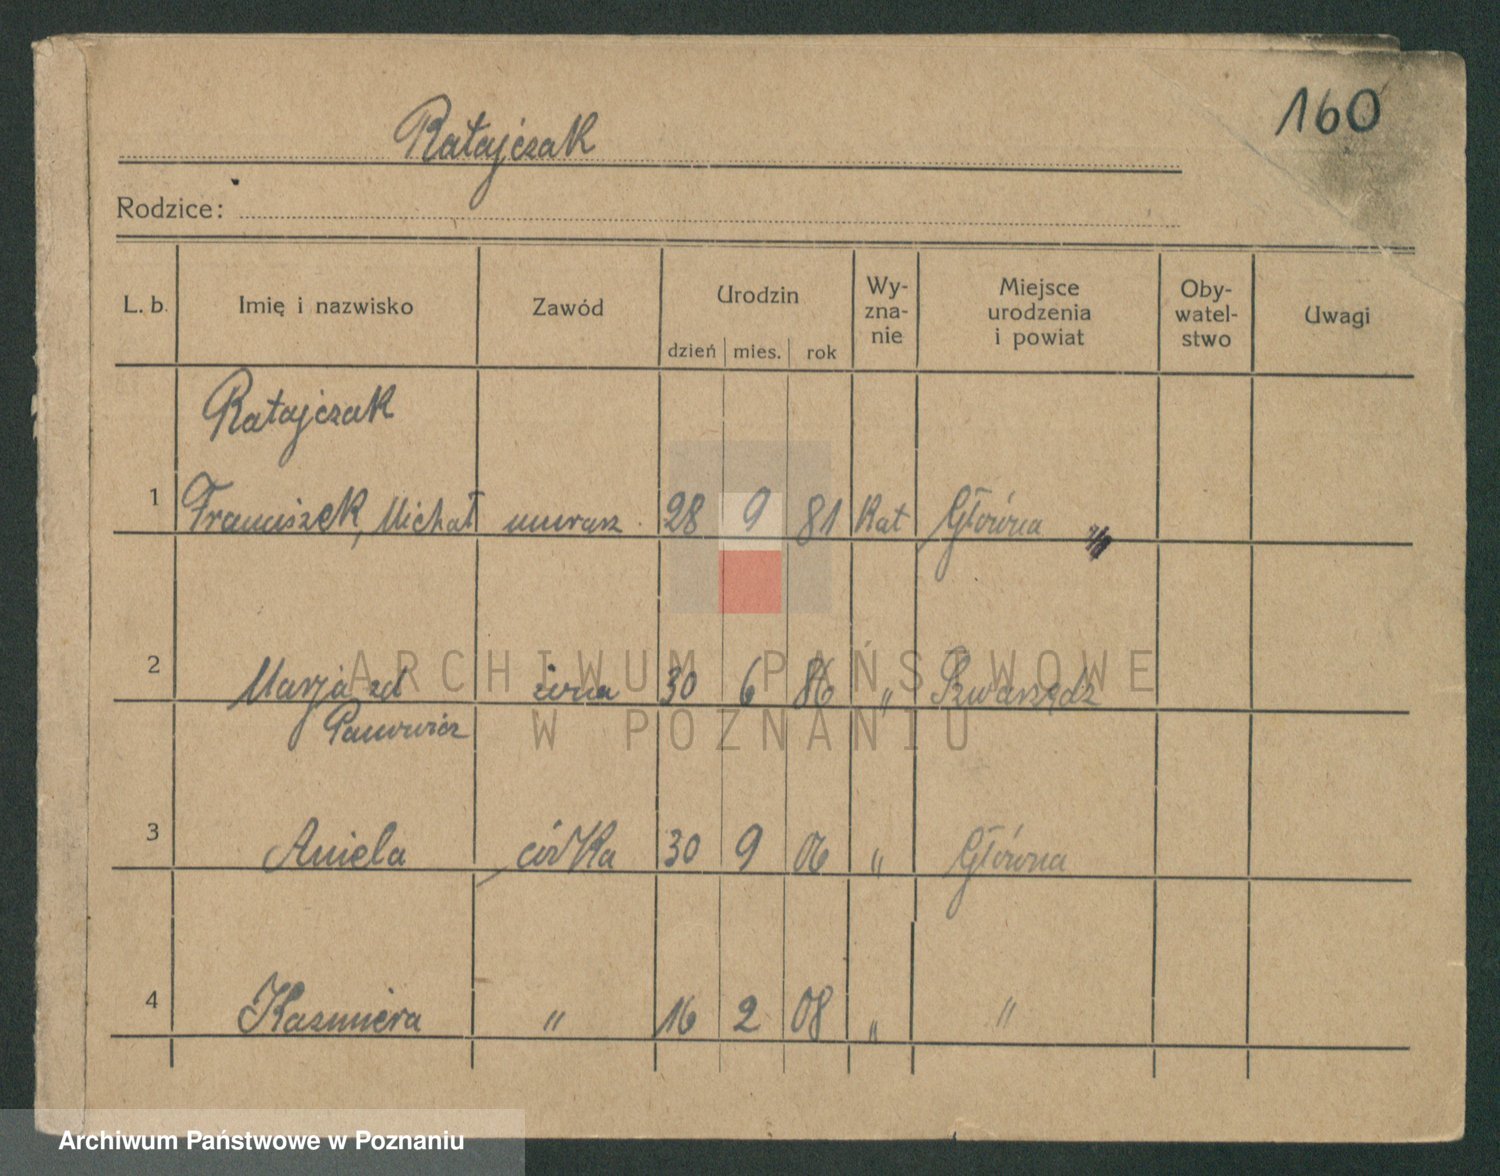 160
Ratajczak
Rodzice:
L. b. Imię i nazwisko Zawód Urodzin dzień mies. rok Wy-zna-nie Miejsce urodzenia i powiat Oby-watel-stwo Uwagi
Ratajczak
1 Franciszek, Michał murarz 28 9 81 Kat Główna
2 Marja zd żona 30 6 86 " Swarzędz
3 Aniela córka 30 9 06 " Główna
4 Kazmiera " 16 2 08 " "
ARCHIWUM PAŃSTWOWE
W POZNANIU
Archiwum Państwowe w Poznaniu